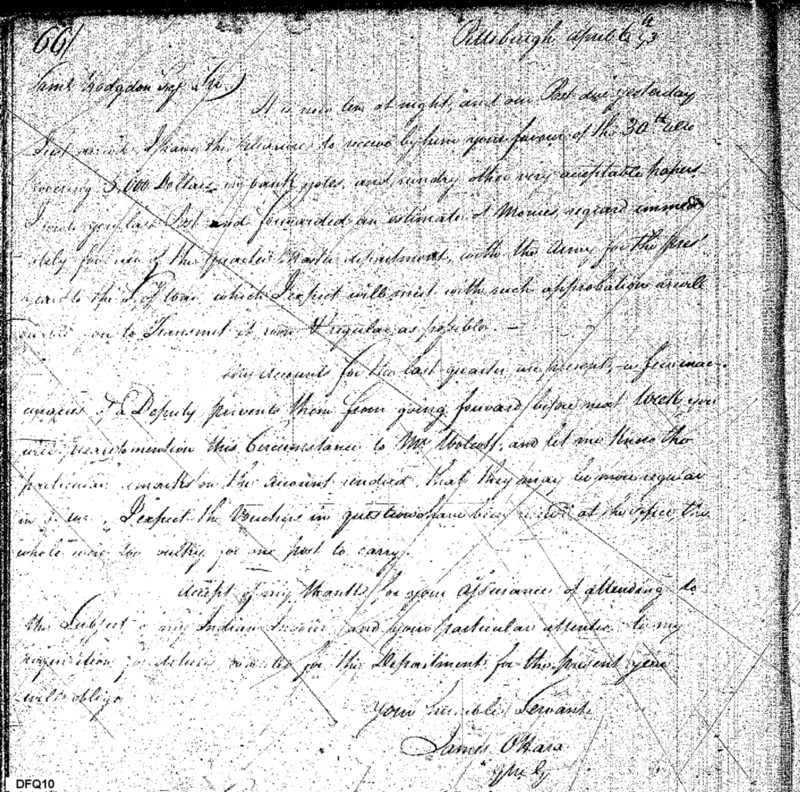 66/
Pittsburgh April 6th 93
Saml Hodgdon Esq Sir
It is now ten at night, and our Post due yesterday
Just arrived. I have the pleasure to receive by him your favour of the 30th ulto
Covering 5,000 Dollars in bank notes, and sundry other very acceptable papers
I wrote you last Post and forwarded an estimate of Monies required immed
iately for use of the Quarter Master department, with the Army for the pres
year to the S. of War, which I expect will meet with such approbation as will
on to Transmit it regular as possible. —
My accounts for the last quarter are present, a few inac-
curacies of a Deputy prevents them from going forward before next Week you
will please to mention this Circumstance to Mr Wolcott, and let me know the
particular remarks on the account rendered that they may be more regular
in I expect the Vouchers in question have been recd at the office the
whole were too bulky for one post to carry.
Accept of my thanks for your assurances of attending to
the Subject of my Indian and your particular attention to my
requisition for articles wanted for the Department for the present year
will oblige
Your humble Servant
James OHara